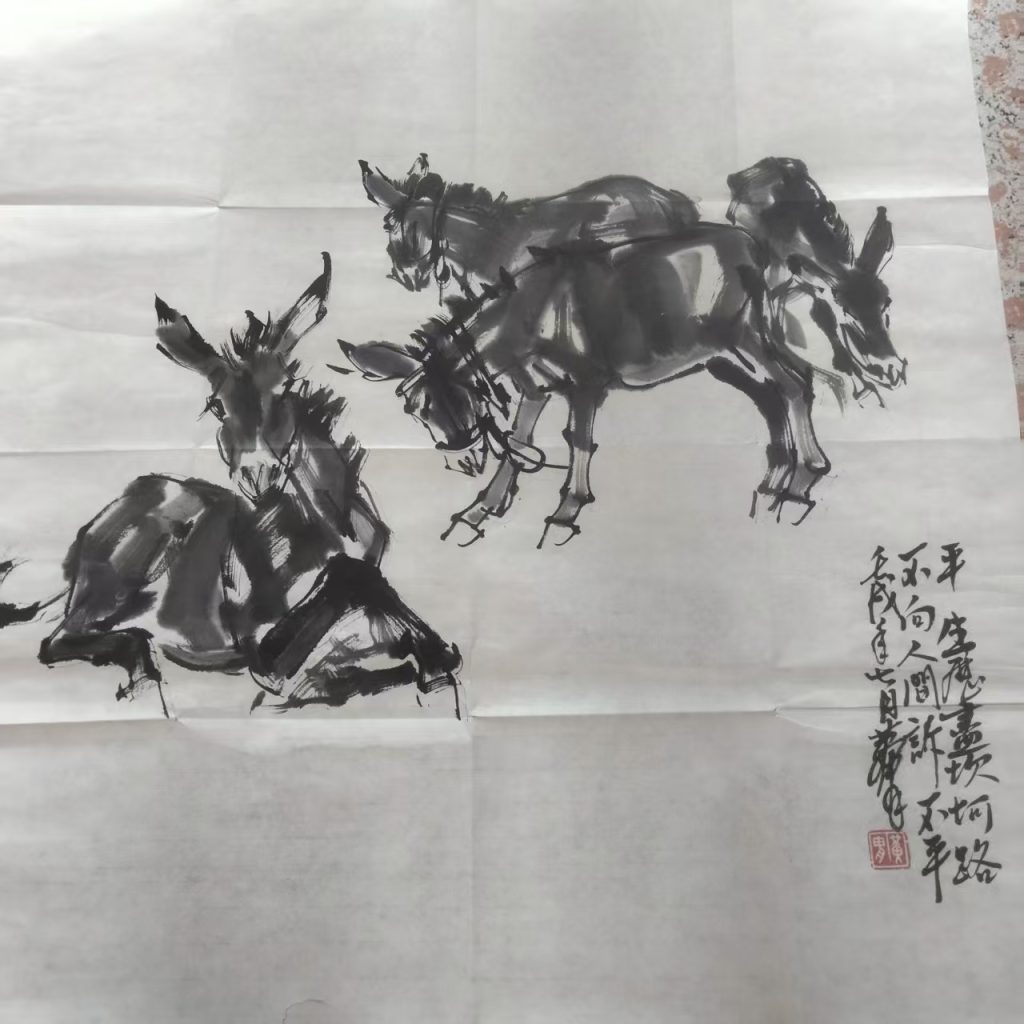 平生历尽坎坷路
不向人間訴不平
壬戌年七月黄胄
黄胄